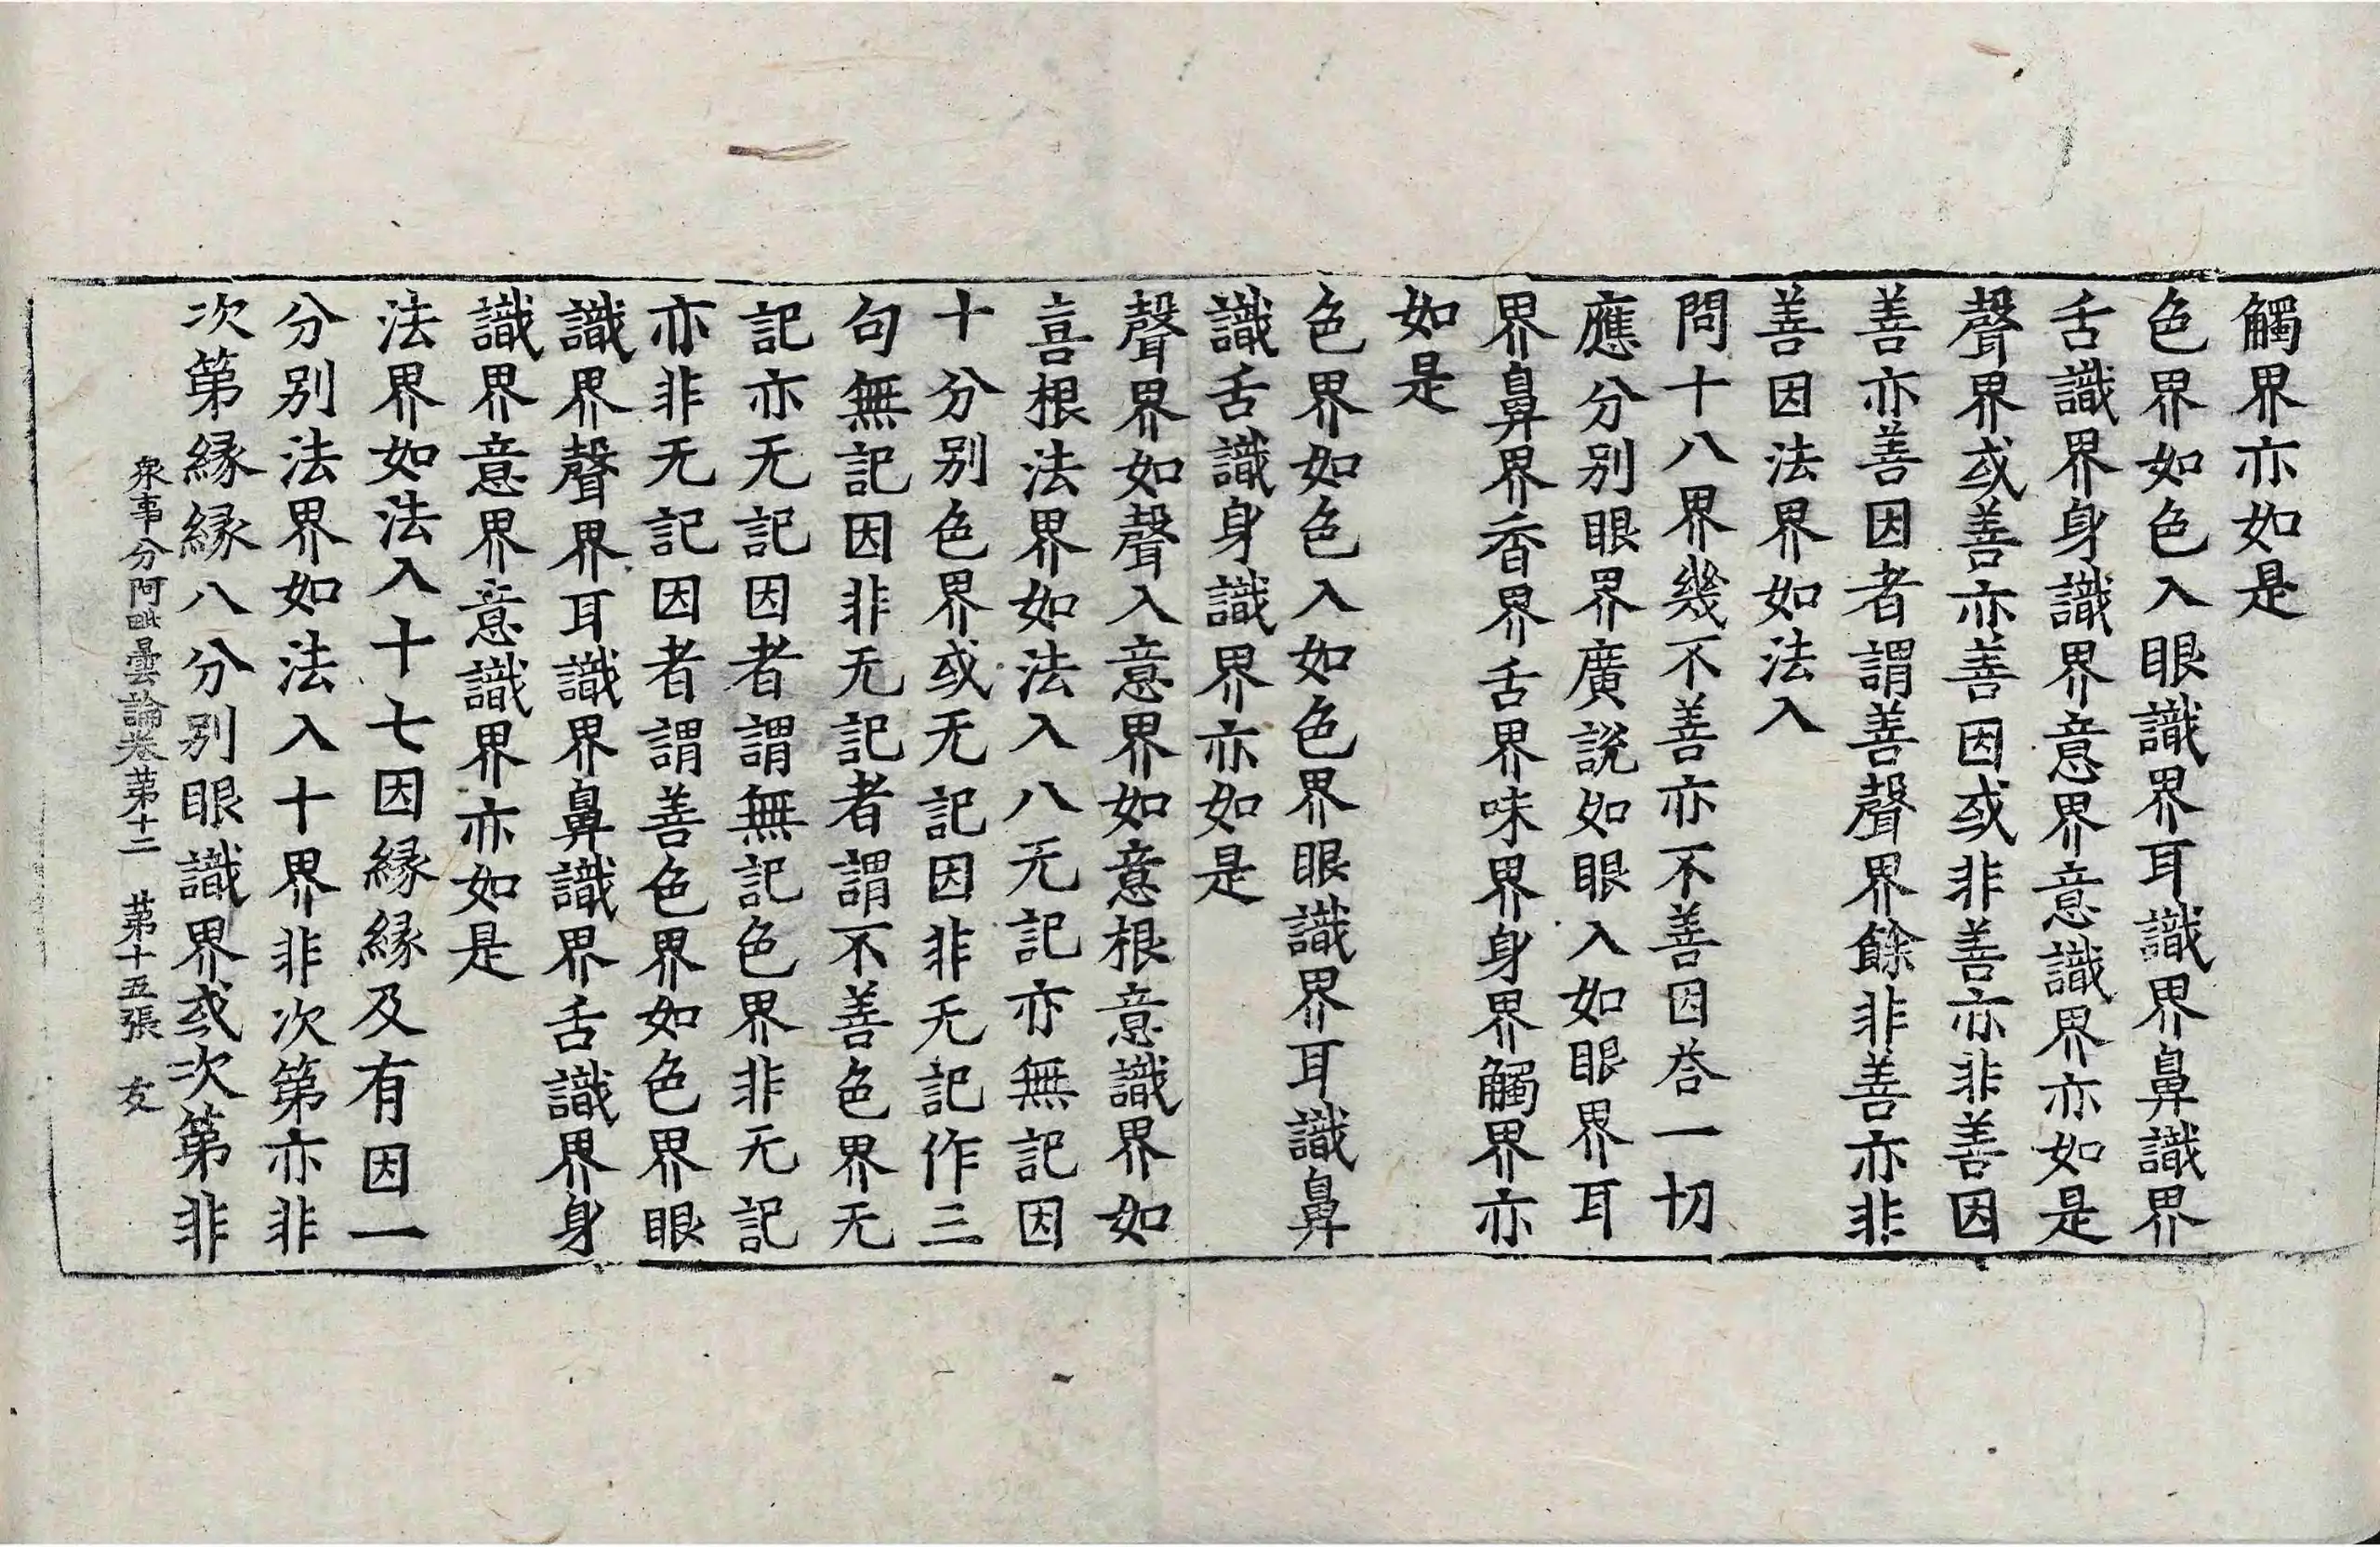 觸界亦如是
色界如色入眼識界耳識界鼻識界
舌識界身識界意界意識界亦如是
聲界或善亦善因或非善亦非善因
善亦善因者謂善聲界餘非善亦非
善因法界如法入
問十八界幾不善亦不善因荅一切
應分別眼界廣說如眼入如眼界耳
界鼻界香界舌界味界身界觸界亦
如是
色界如色入如色界眼識界耳識鼻
識舌識身識界亦如是
聲界如聲入意界如意根意識界如
喜根法界如法入八无記亦無記因
十分別色界或无記因非无記作三
句無記因非无記者謂不善色界无
記亦无記因者謂無記色界非无記
亦非无記因者謂善色界如色界眼
識界聲界耳識界鼻識界舌識界身
識界意界意識界亦如是
法界如法入十七因緣緣及有因一
分別法界如法入十界非次第亦非
次第緣緣八分別眼識界或次第非
衆事分阿毗曇論卷第十二　第十五張　友